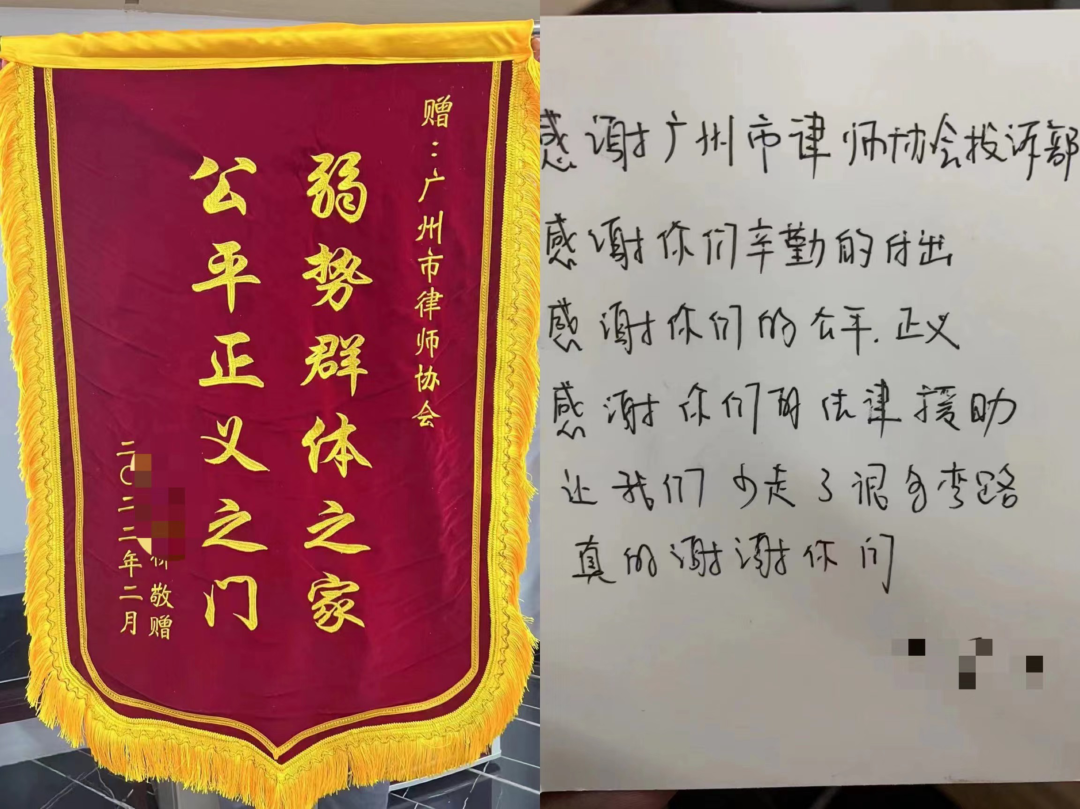 赠：广州市律师协会
弱势群体之家
公平正义之门
敬赠
二〇二二年二月
感谢广州市律师协会投诉部
感谢你们辛勤的付出
感谢你们的公平.正义
感谢你们的法律援助
让我们少走了很多弯路
真的谢谢你们